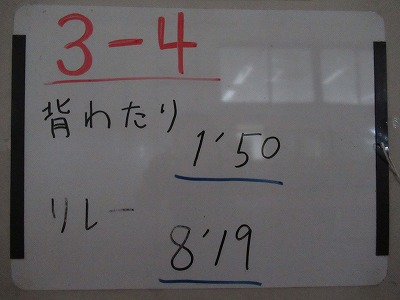 3-4
背わたり
1'50
リレー
8'19